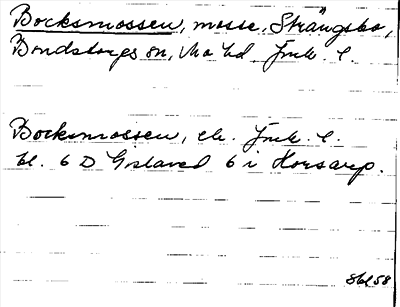 Bocksmossen, mosse, Strängsbo,
Bondstorps sn, Mo hd Jmk. l.
Bocksmossen, ek. Jmk. l.
bl. 6 D Gislaved 6 i Horsarp.
Sbl 58